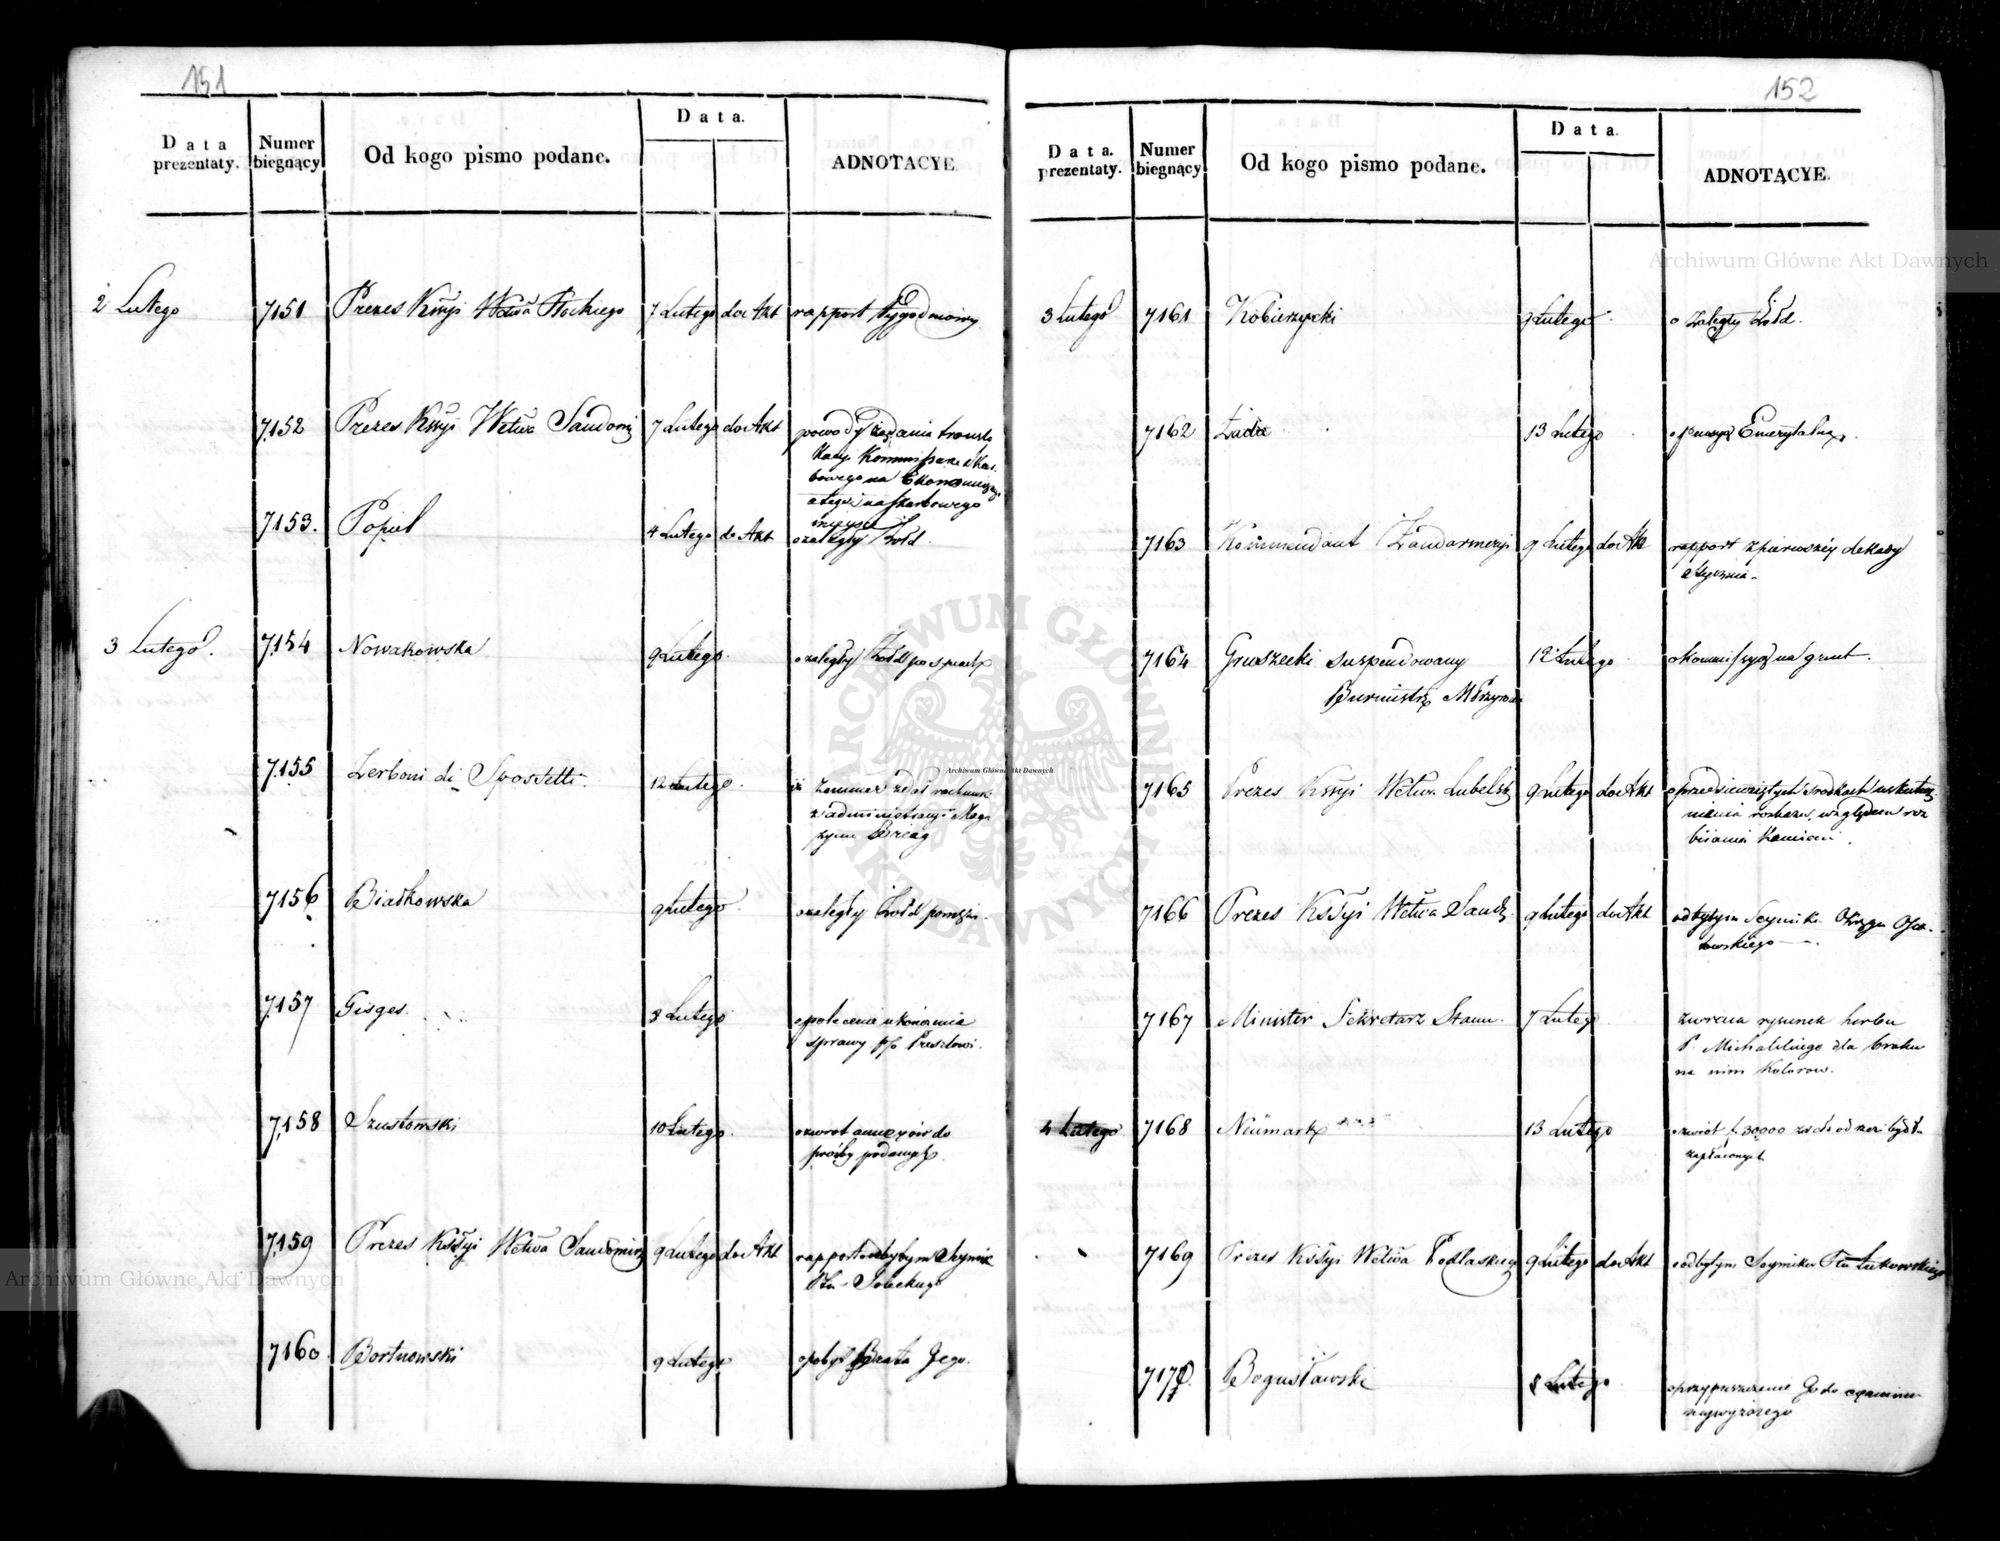 151
Data prezentaty. Numer biegnący Od kogo pismo podane. Data. ADNOTACYE.
2 Lutego 7151 Prezes Kssyi Wctwa Płockiego 7 Lutego do Akt rapport tygodniowy
7152 Prezes Kssyi Wctwa Sandom 7 Lutego do Akt powody żądania translo
kacyi Kommissarza Skar
bowego na Ekonomiczne
a tego na skarbowego
miejsce
7153. Popiel 4 Lutego do Akt o zaległy Żołd.
3 Lutego. 7154 Nowakowska 9 Lutego. o zaległy Żołd po
7155 Zerboni di Sposetti. 12 Lutego. iż Zommer zdał rachunki
z administracyi Maga
zynu
7156 Białkowska 9 Lutego. o zaległy Żołd
7157 Gisges. 8 Lutego o polecenie ukończenia
sprawy
7158 Szustowski 10 Lutego. o zwrot annexów do
prośby podanych.
7159 Prezes Kssyi Wctwa Sandomirs 9 Lutego do Akt rapport o odbytym Seymie
7160. Bortnowski 9 Lutego o pobyt Brata Jego.
152
Data. prezentaty. Numer biegnący Od kogo pismo podane. Data. ADNOTACYE.
3 Lutego 7161 Kobierzycki 9 Lutego. o zaległy Żołd.
7162 13 Lutego o pensyą Emerytalną.
7163 Kommendant Żandarmeryi 9 Lutego do Akt rapport z pierwszéy dekady
Stycznia
7164 Gruszecki suspendowany 12 Lutego o kommissyą na grunt.
Burmistrz M.
7165 Prezes Kssyi Wctwa Lubelsk 9 Lutego do Akt o przedsiewziętych środkach uskutecz
nienia rozkazu, względem roz
bijania Kamieni.
7166 Prezes Kssyi Wctwa Sand. 9 Lutego do Akt o odbytym Seymiku Okręgu Opa
towskiego
7167 Minister Sekretarz Stanu. 7 Lutego zwraca rysunek herbu
P. Michalskiego dla braku
na nim kolorow.
4 Lutego 7168 Neümark 13 Lutego o zwrot f. 30000 za
zapłaconych
7169 Prezes Kssyi Wctwa Podlaskieg 9 Lutego do Akt o odbytym Seymiku Ptu Łukowskiego
7170. Bogusławski 8 Lutego. o przypuszczenie Go do examinu
naywyższego
Archiwum Główne Akt Dawnych
Archiwum Główne Akt Dawnych
ARCHIWUM GŁÓWNE AKT DAWNYCH
Archiwum Główne Akt Dawnych